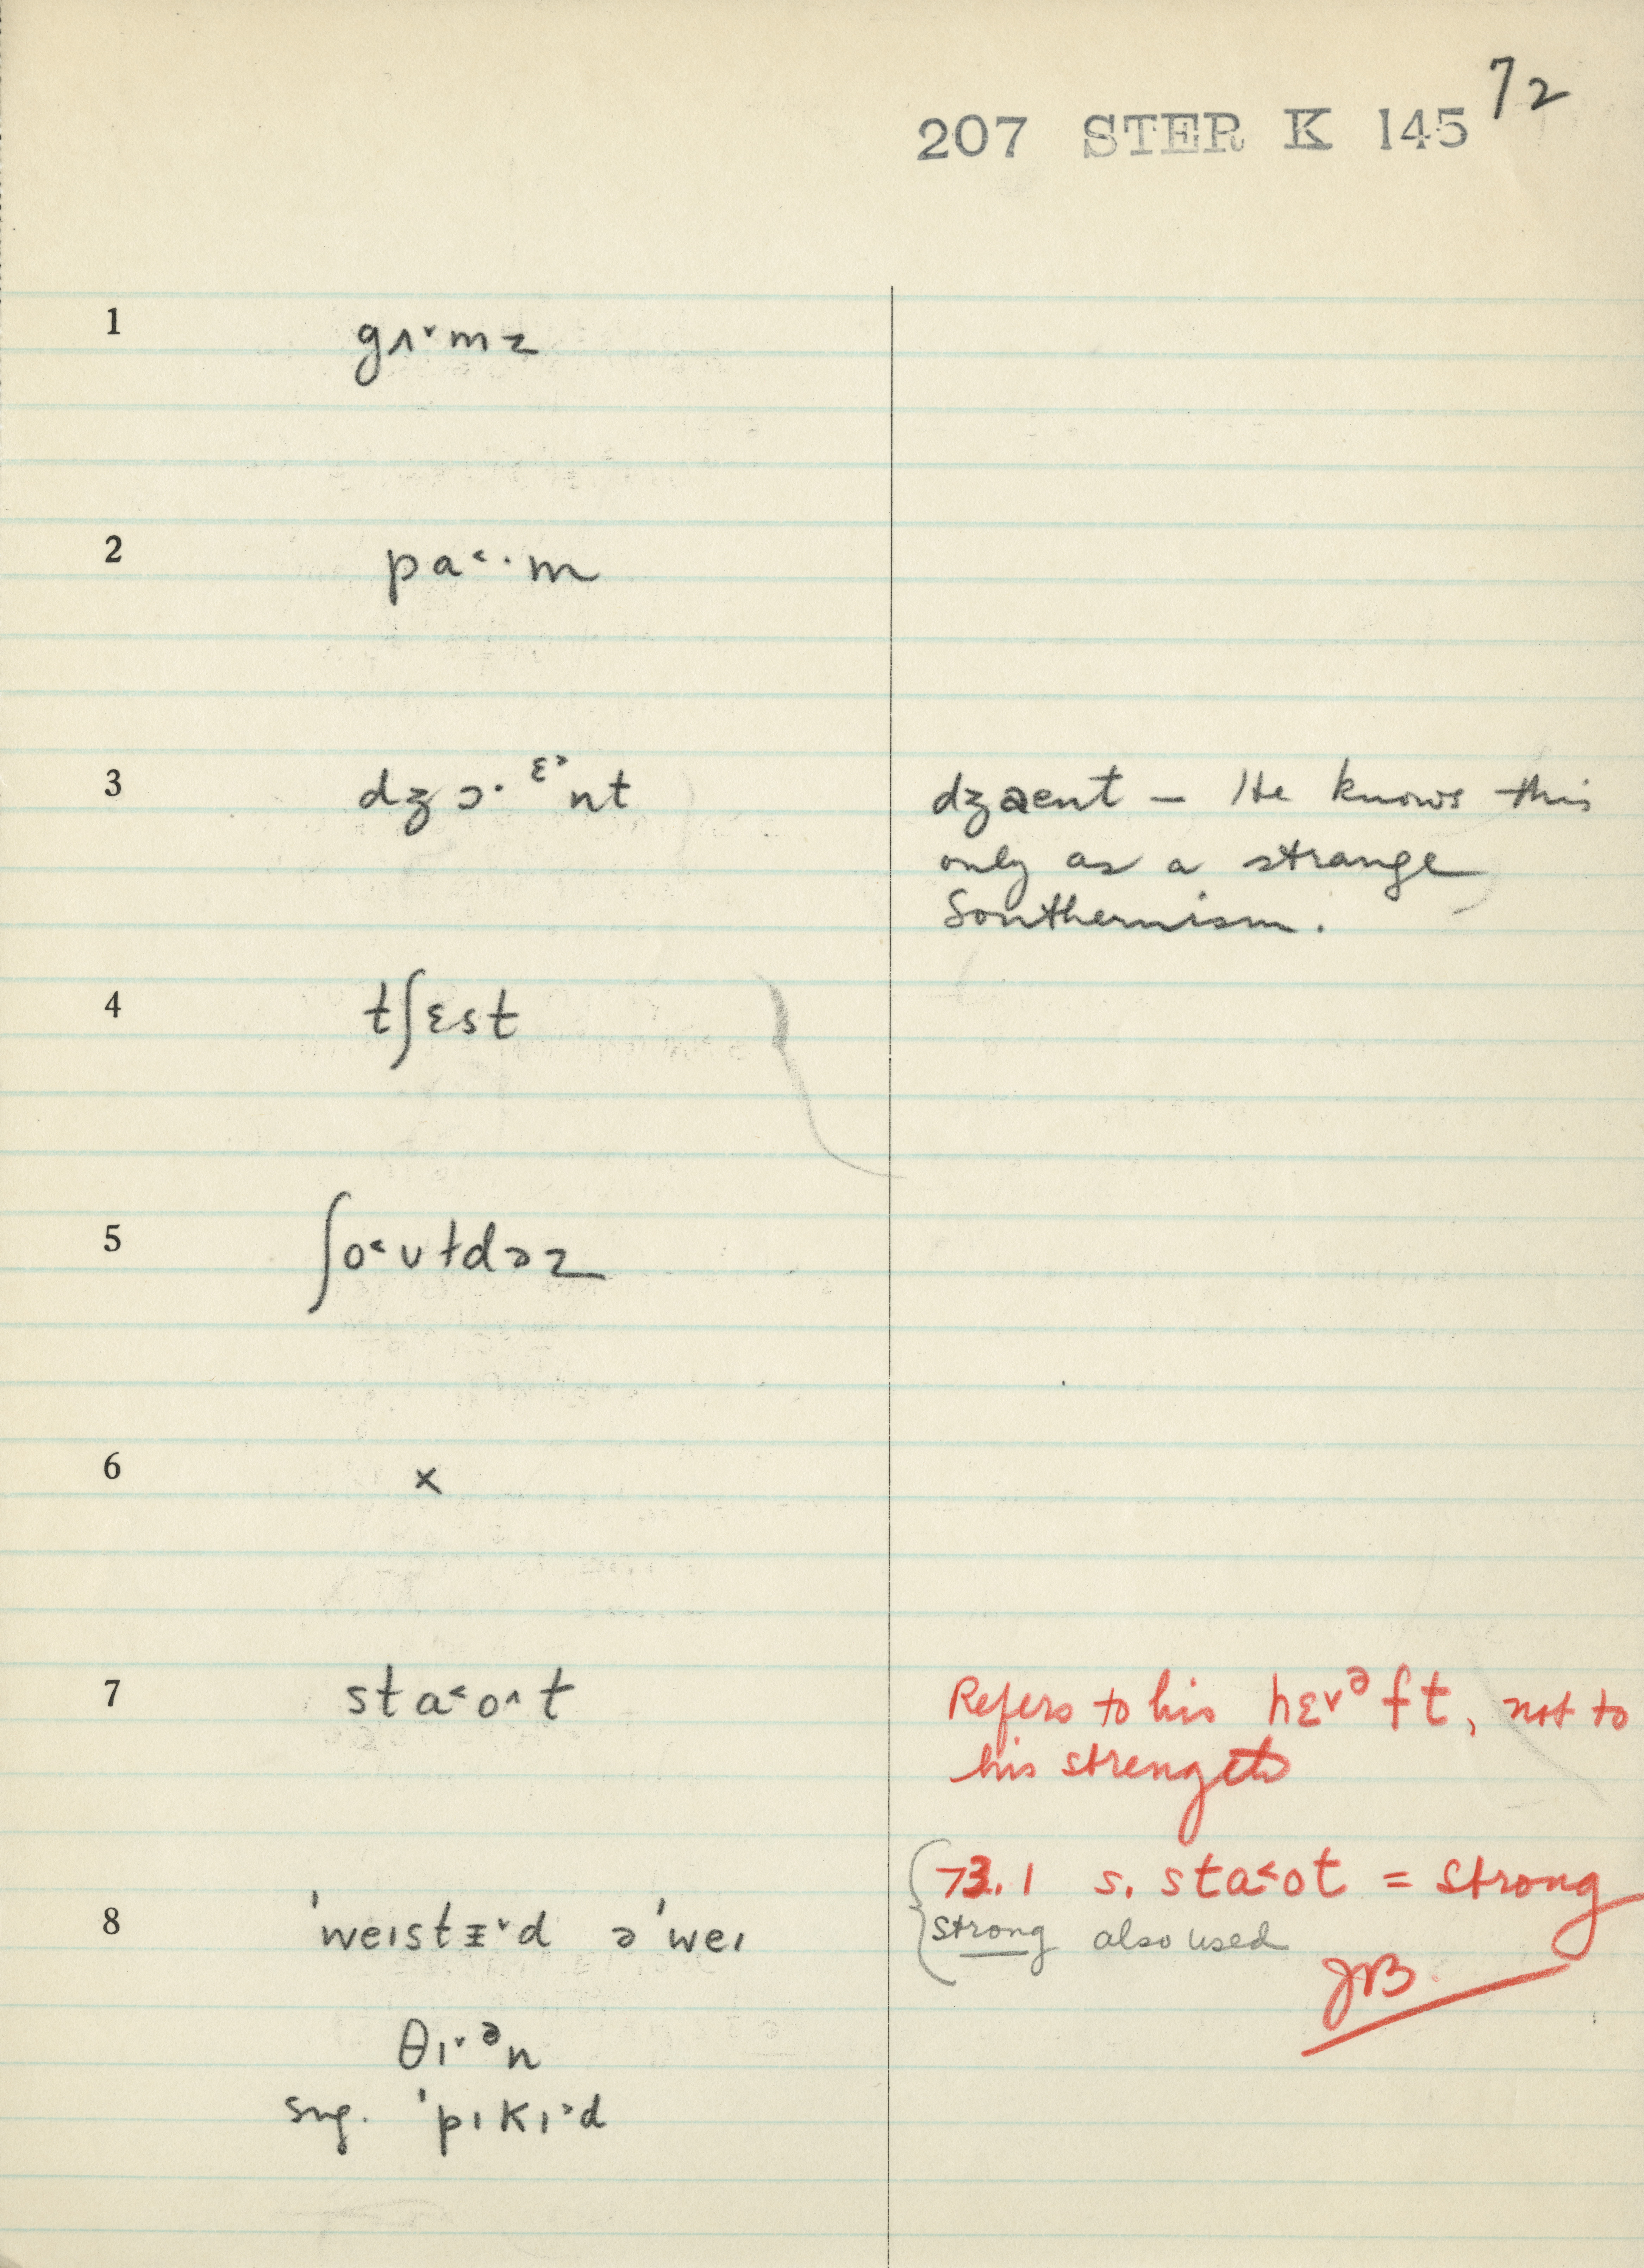 72
207 STER K 145
1 gʌ˅mz
2 pa˂·m
3 dʒɔ·ᵋ˃nt dʒaent – He knows this
only as a strange
Southernism.
4 tʃɛst
5 ʃo˂ʊɫdəz
6 x
7 sta˂o˄t Refers to his hɛ˅ᵊft, not to
his strength
73.1 s. sta˂ot = strong
strong also used
8 ˈweɪstɪ˅d əˈweɪ
JVB.
θɪ˅ᵊn
sug. ˈpɪkɪ˃d